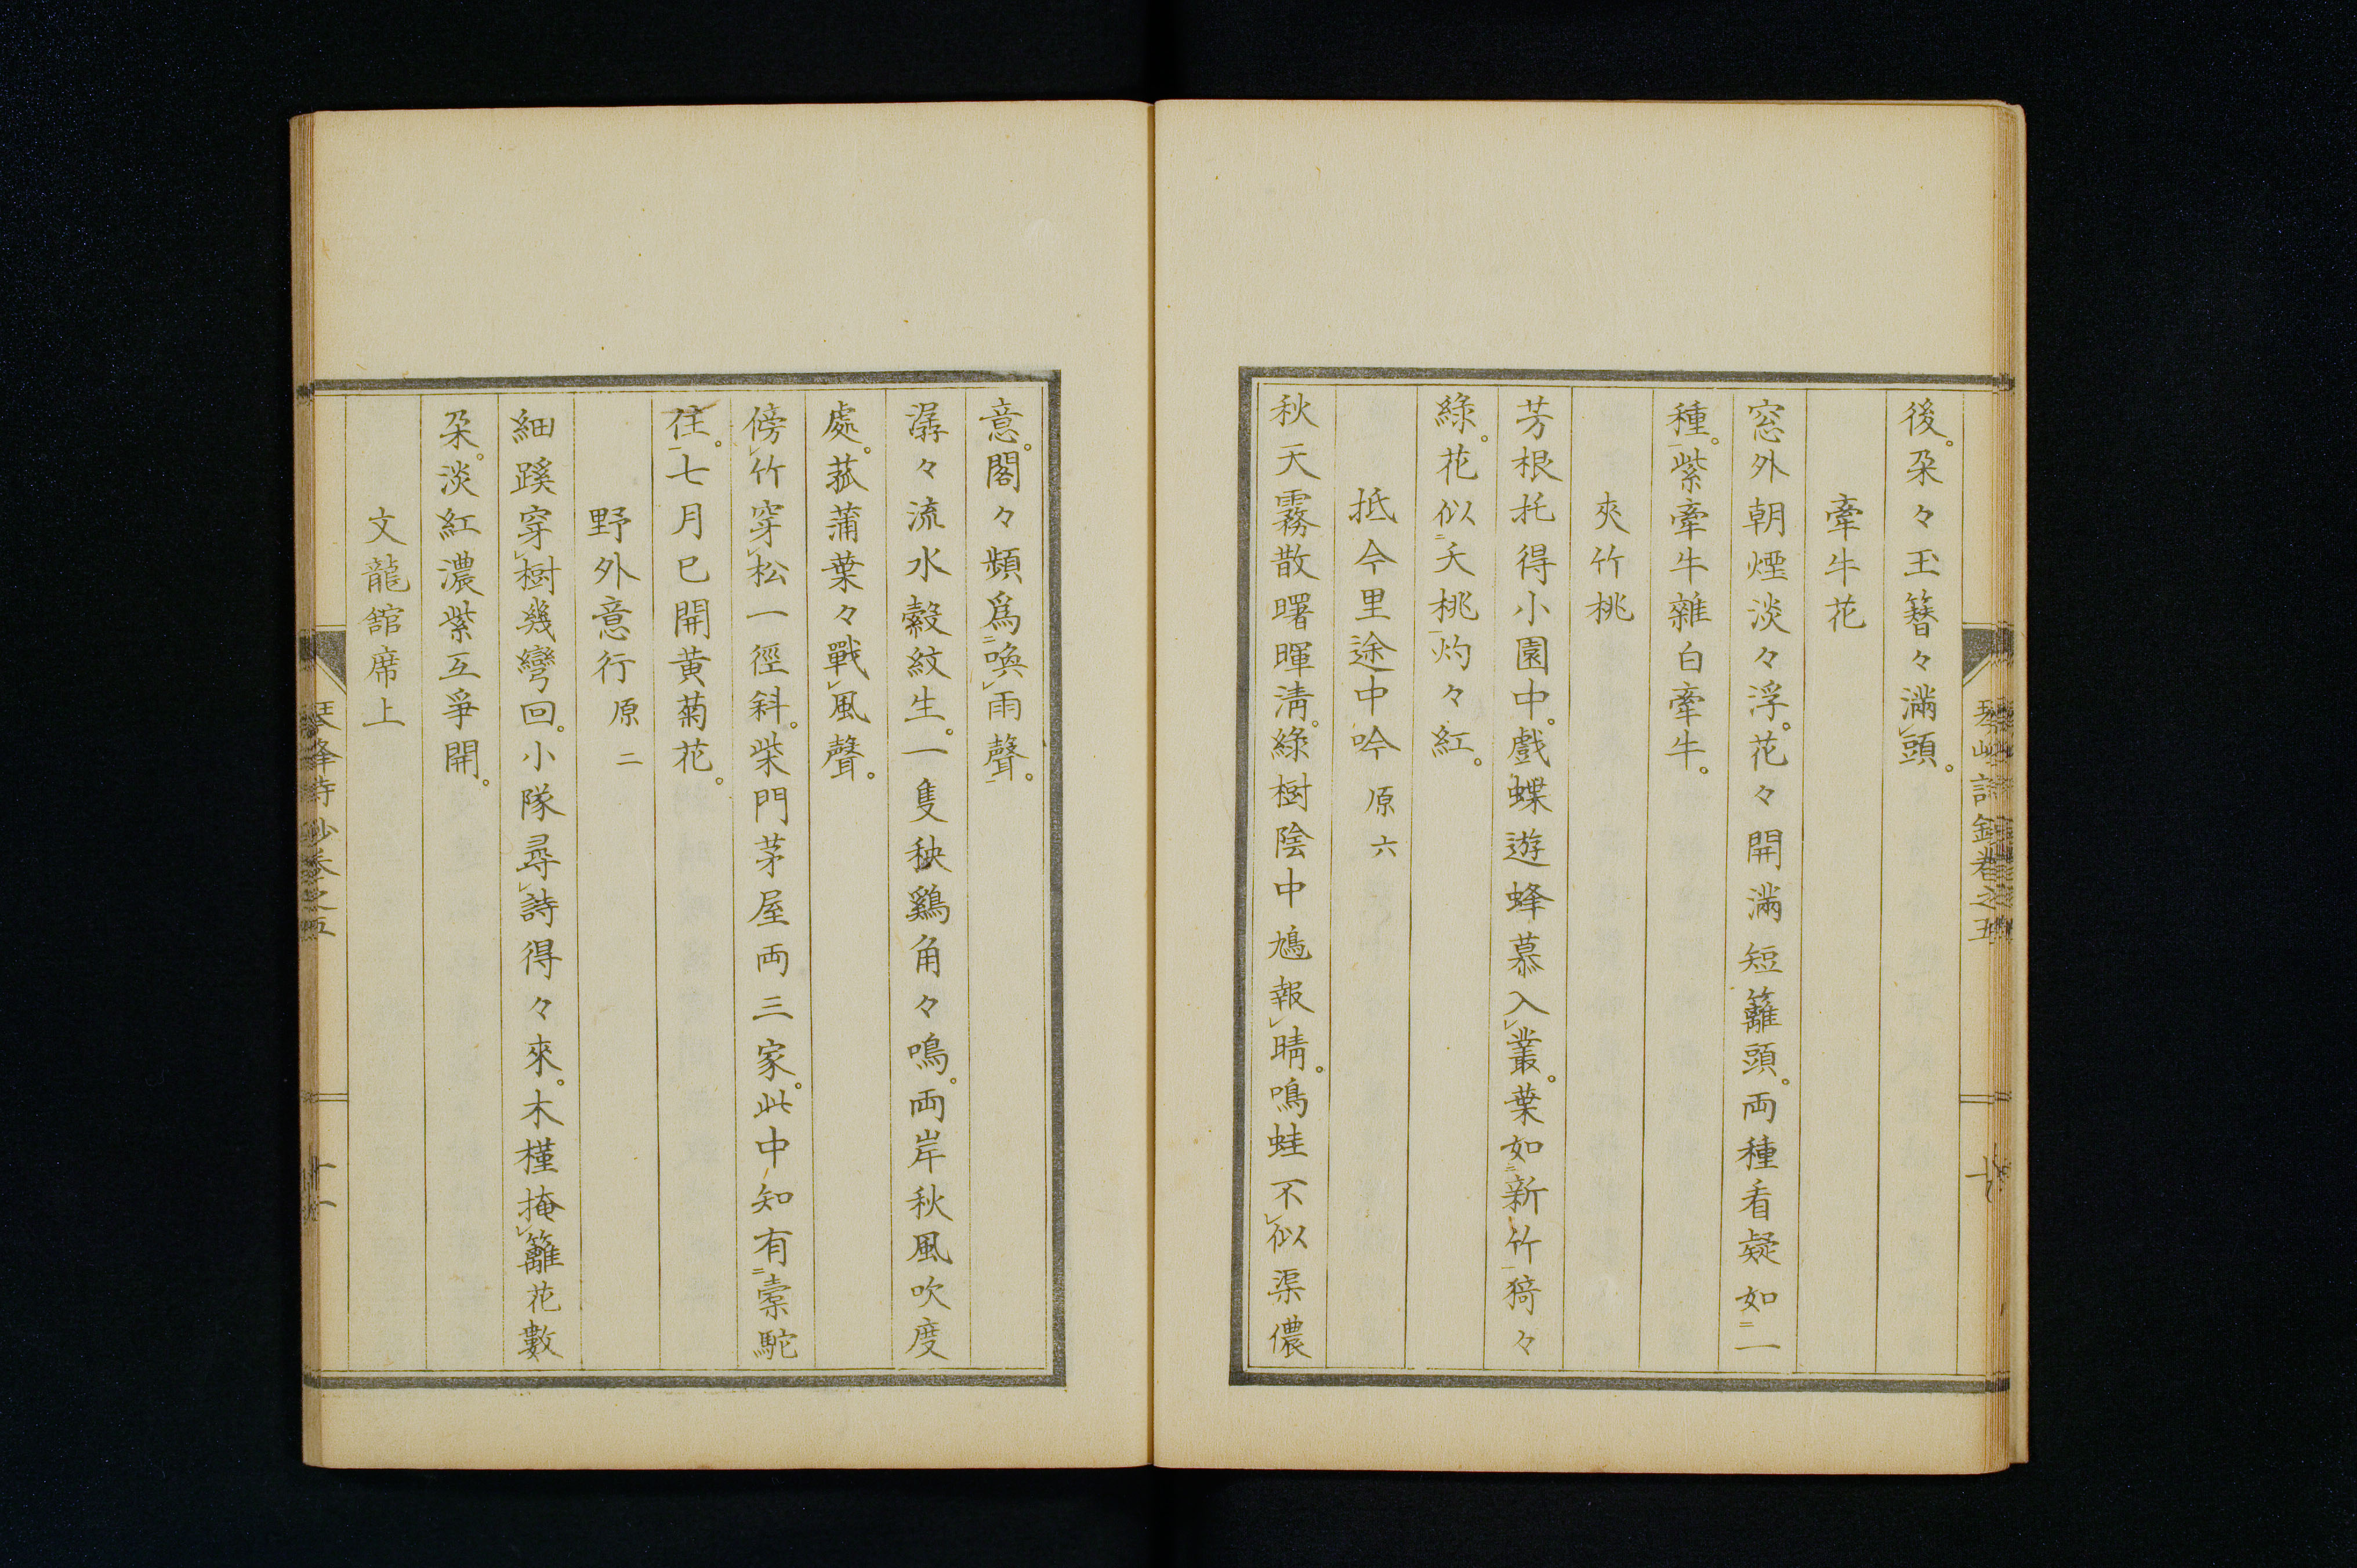 後。朶々玉簪々滿頭。
牽牛花
窓外朝煙淡々浮。花々開滿短籬頭。両種看疑如一
種。紫牽牛雜白牽牛。
夾竹桃
芳根托得小園中。戲蝶遊蜂慕入叢。葉如新竹猗々
綠。花似夭桃灼々紅。
抵今里途中吟 原六
秋天霧散曙暉淸。綠樹陰中鳩報晴。鳴蛙不似渠儂
意。閣々頻爲喚雨聲。
潺々流水縠紋生。一隻秧鷄角々鳴。両岸秋風吹度
處。菰蒲葉々戰風聲。
傍竹穿松一徑斜。柴門茅屋両三家。此中知有橐駝
住。七月已開黃菊花。
野外意行 原二
細蹊穿樹幾彎回。小隊尋詩得々來。木槿掩籬花數
朶。淡紅濃紫互爭開。
文龍舘席上